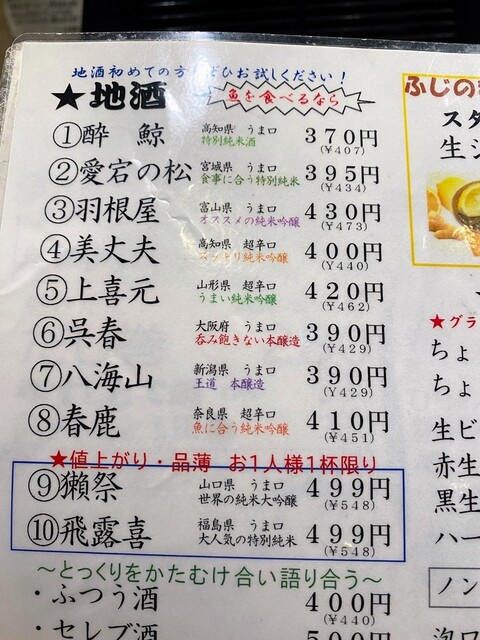 地酒初めての方 ぜひお試しください!
★地酒 魚を食べるなら
①酔 鯨 高知県 うま口 特別純米酒 370円 (¥407)
②愛宕の松 宮城県 うま口 食事に合う特別純米 395円 (¥434)
③羽根屋 富山県 うま口 オススメの純米吟醸 430円 (¥473)
④美丈夫 高知県 超辛口 純米吟醸 400円 (¥440)
⑤上喜元 山形県 超辛口 うまい純米吟醸 420円 (¥462)
⑥呉春 大阪府 うま口 呑み飽きない本醸造 390円 (¥429)
⑦八海山 新潟県 うま口 王道 本醸造 390円 (¥429)
⑧春鹿 奈良県 超辛口 魚に合う純米吟醸 410円 (¥451)
★値上がり・品薄 お1人様1杯限り
⑨獺祭 山口県 うま口 世界の純米大吟醸 499円 (¥548)
⑩飛露喜 福島県 うま口 大人気の特別純米 499円 (¥548)
〜とっくりをかたむけ合い語り合う〜
・ふつう酒 400円 (¥440)
・セレブ酒 500円
ふじの
スタ
生ジ
★グラ
ちょ
ちょ
生ビ
赤生
黒生
ハー
ノン